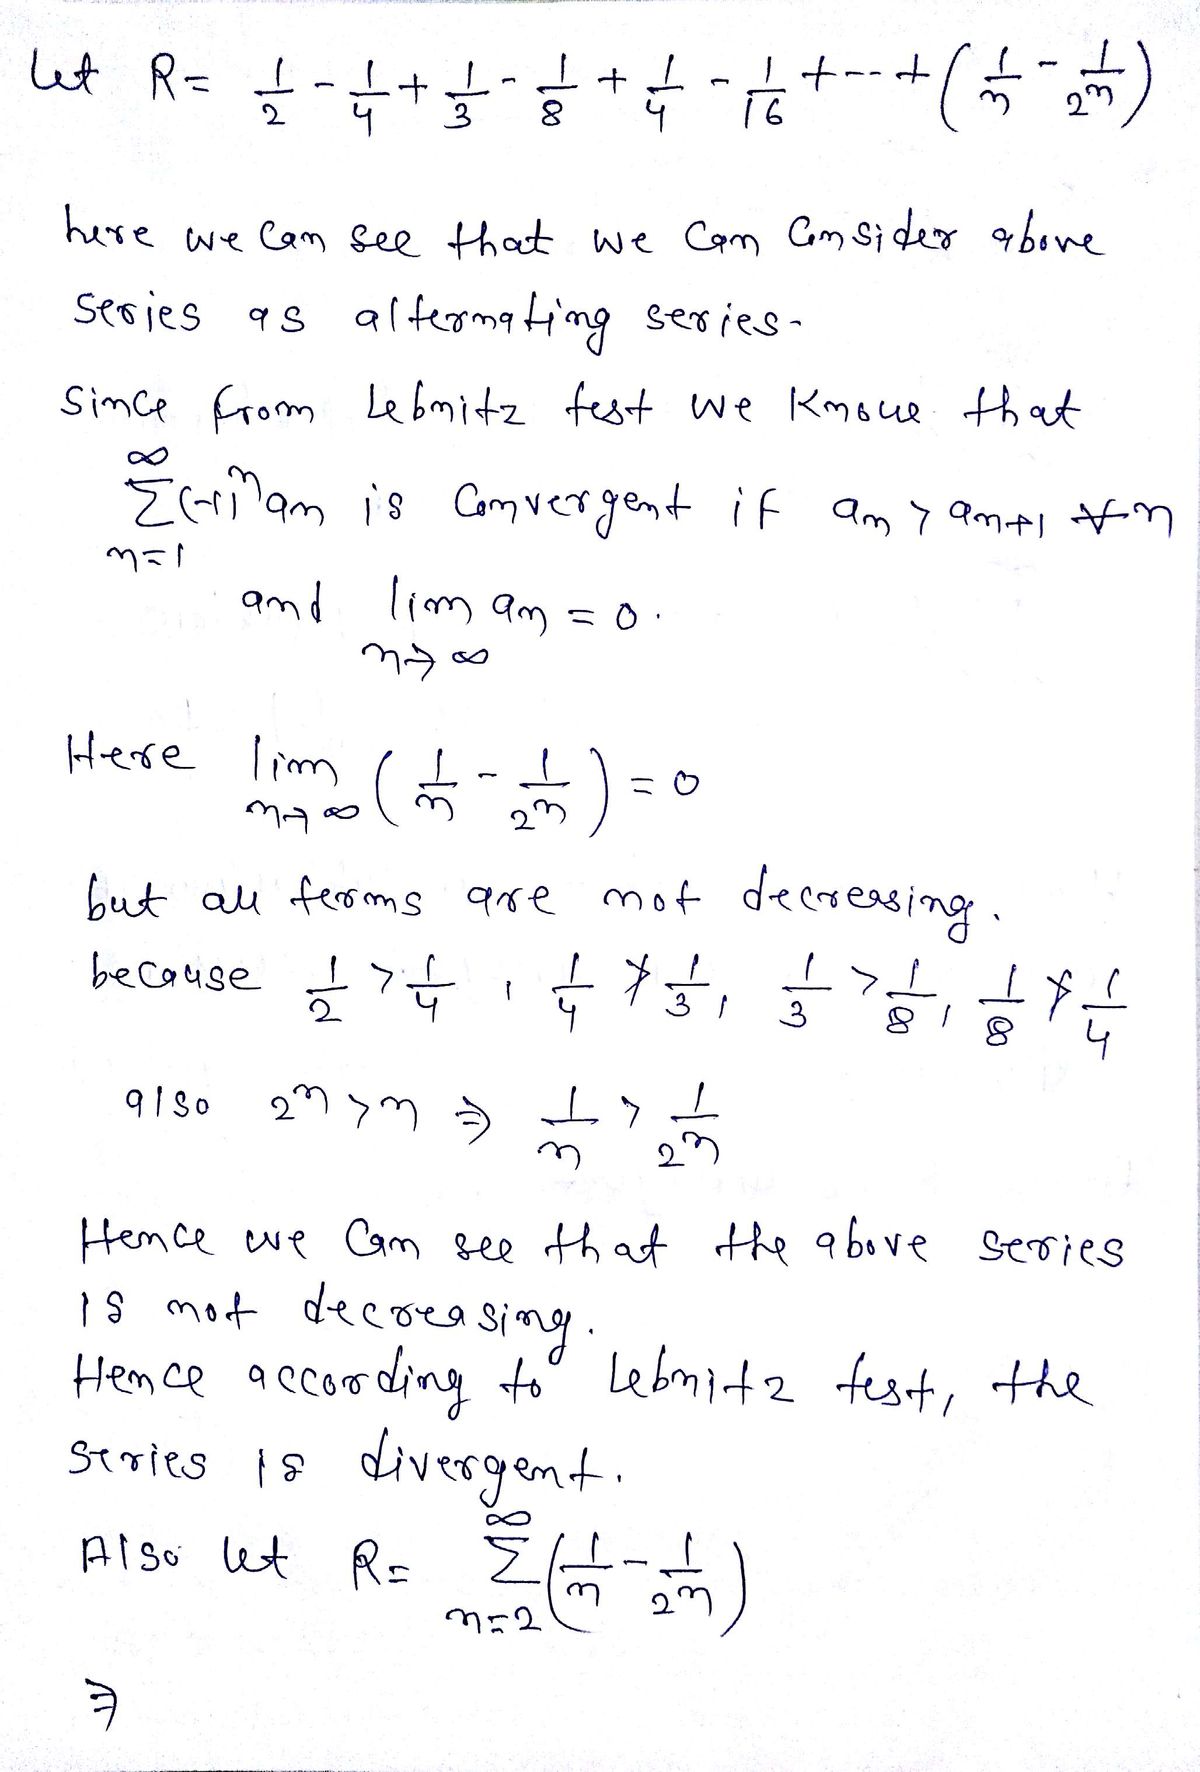 let R = 1/2 - 1/4 + 1/3 - 1/8 + 1/4 - 1/16 + --- + (1/n - 1/2^n)
here we can see that we can consider above
series as alternating series-
Since from Lebnitz test we know that
∞ Σ n=1 (-1)^n an is convergent if an > an+1 ∀ n
and lim n→∞ an = 0.
Here lim n→∞ (1/n - 1/2^n) = 0
but all terms are not decreasing.
because 1/2 > 1/4 , 1/4 ≯ 1/3, 1/3 > 1/8, 1/8 ≯ 1/4
also 2^n > n ⇒ 1/n > 1/2^n
Hence we can see that the above series
is not decreasing.
Hence according to Lebnitz test, the
series is divergent.
Also let R = ∞ Σ n=2 (1/n - 1/2^n)
⇒